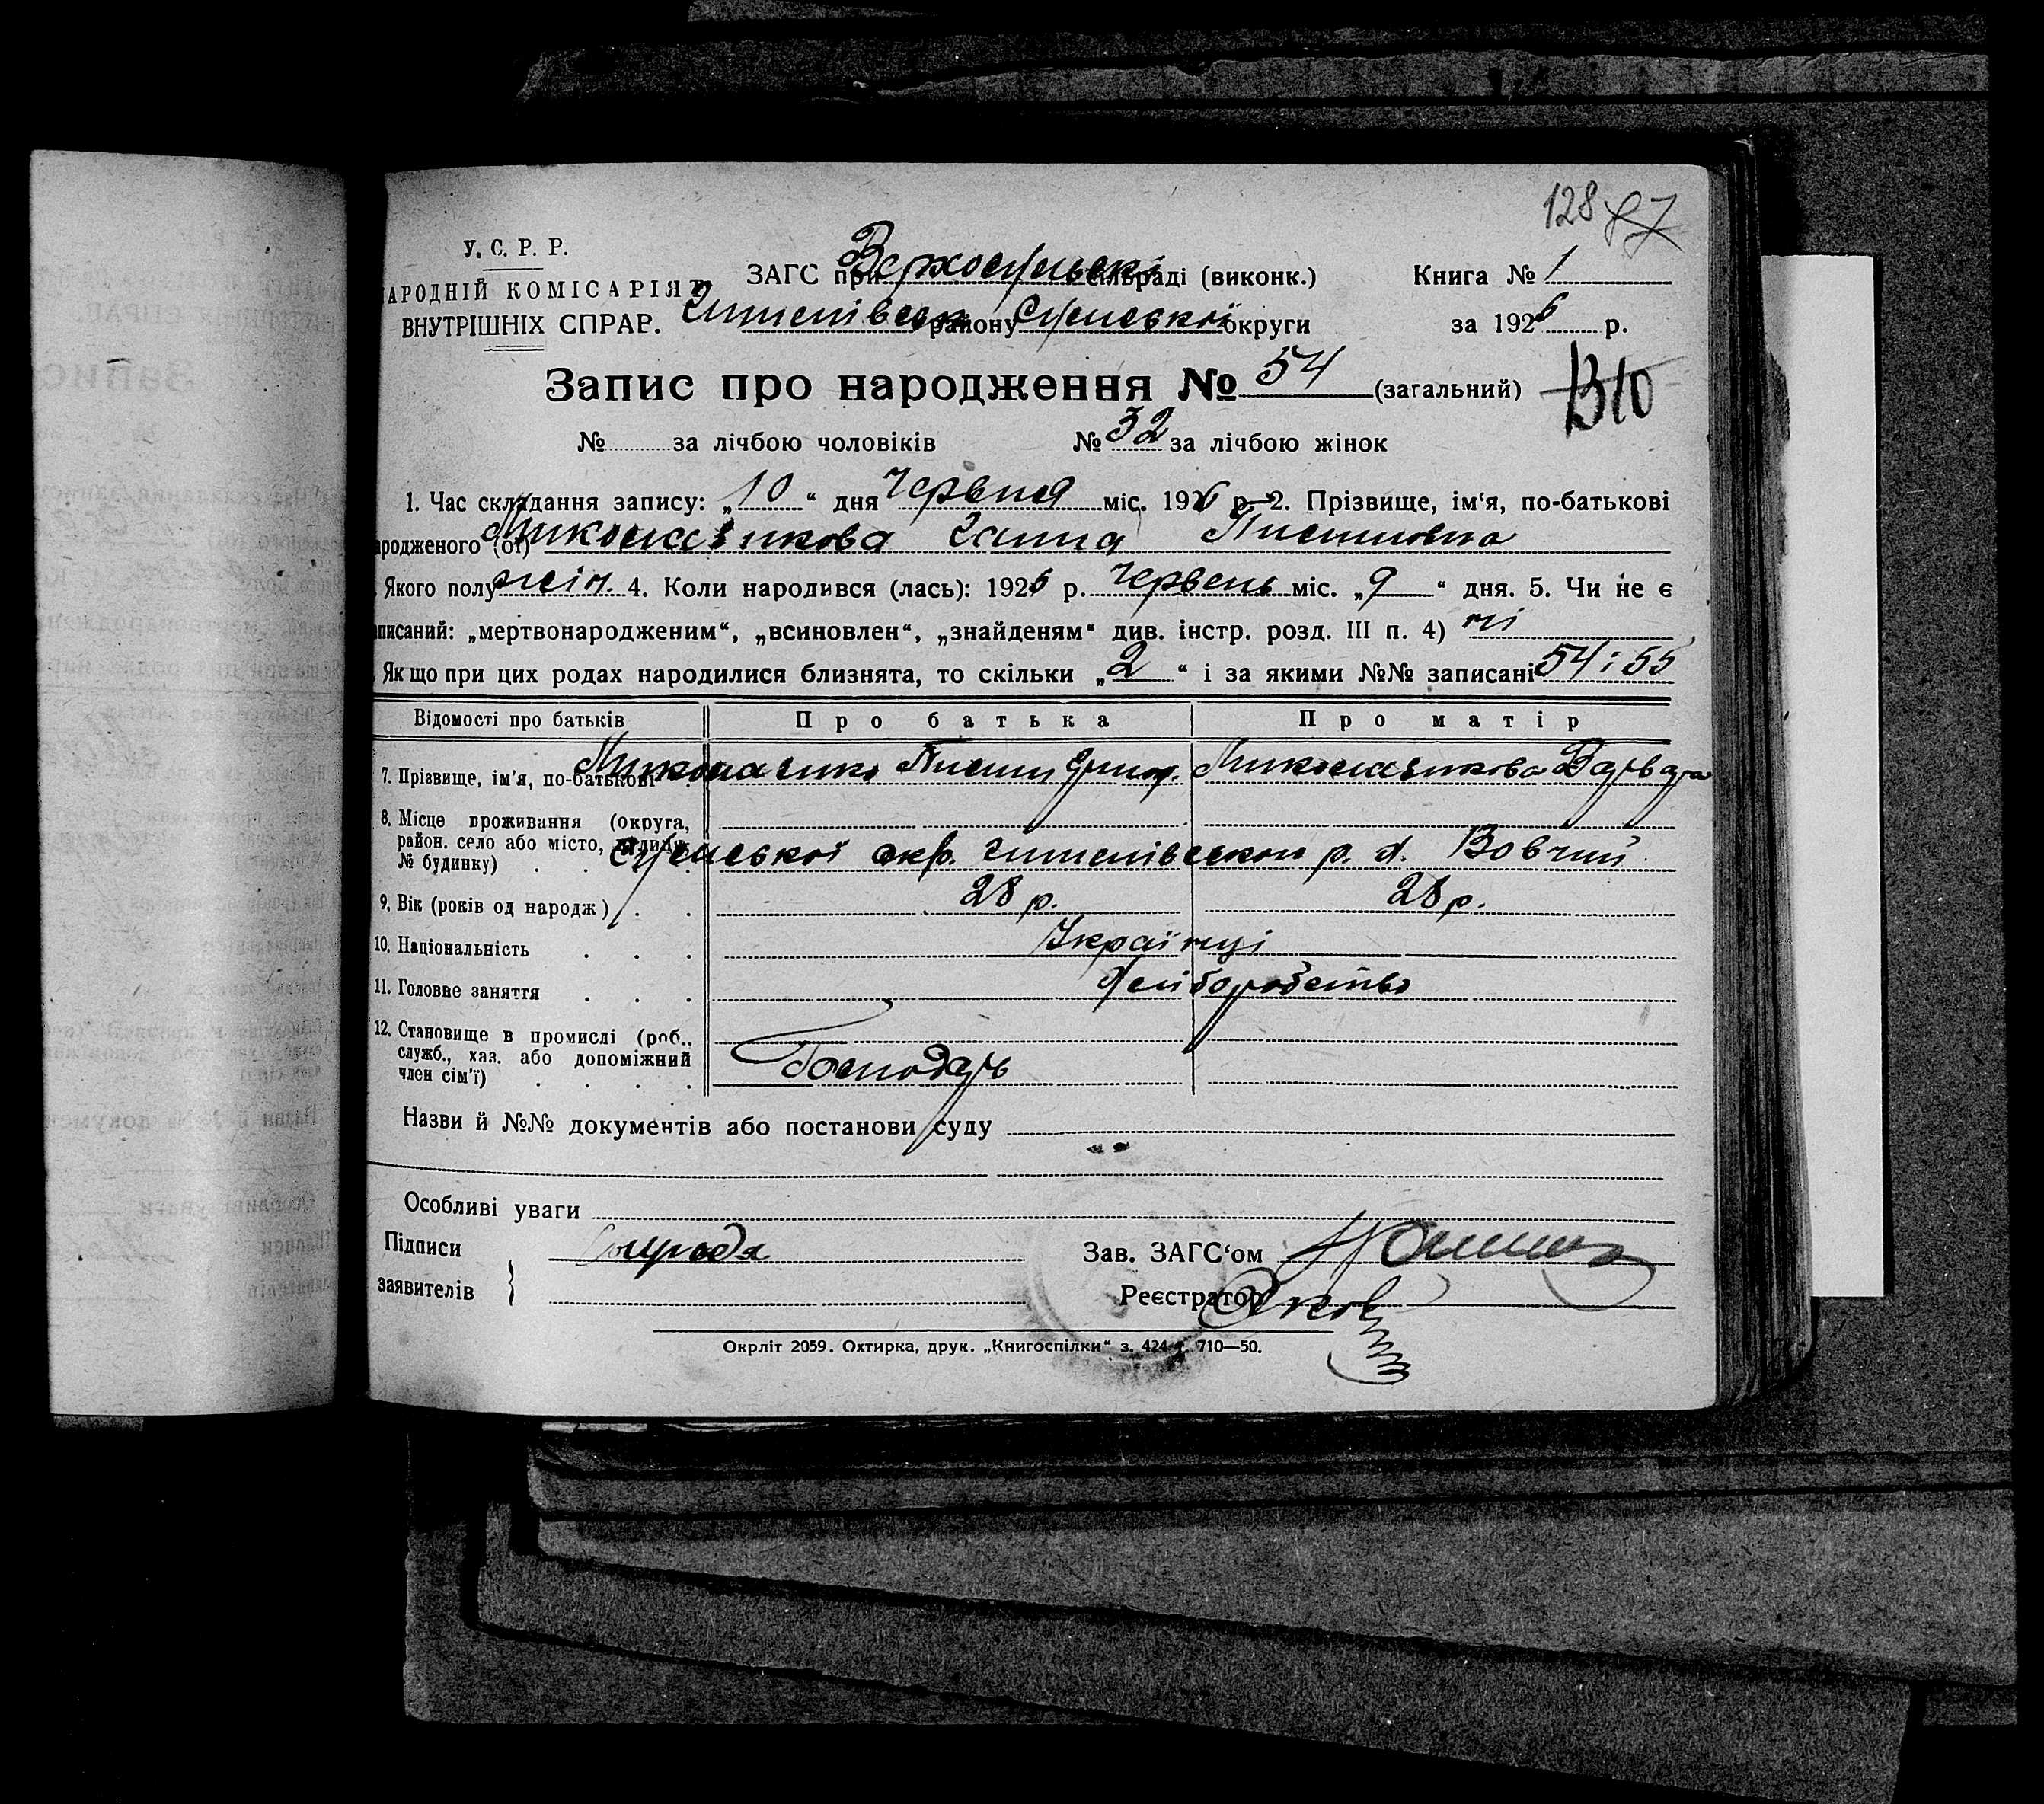 128 87
У. С. Р. Р.
АРОДНІЙ КОМІСАРІЯТ
ВНУТРІШНІХ СПРАВ.
ЗАГС при Верхосульські сільраді (виконк.)
Книга № 1
районy Сумської округи
за 1926 р.
Запис про народження № 54 (загальний)
1310
№ за лічбою чоловіків № 32 за лічбою жінок
1. Час складання запису: „10“ дня Червня міс. 1926 р. 2. Прізвище, ім‘я, по-батькові
ародженого (ої) Ганна
Якого полу жін. 4. Коли народився (лась): 1926 р. Червень міс. „9“ дня. 5. Чи не є
аписаний: „мертвонародженим“, „всиновлен“, „знайденям“ див. інстр. розд. III п. 4) ні
Якщо при цих родах народилися близнята, то скільки „2“ і за якими №№ записані 54 і 55
Відомості про батьків Про батька Про матір
7. Прізвище, ім‘я, по-батькові Варвара
8. Місце проживання (округа,
район, село або місто, вулиця,
№ будинку) Сумської окр. р. х. Вовчий
9. Вік (років од народж) 28 р. 28 р.
10. Національність Українці
11. Головне заняття Хліборобство
12. Становище в промислі (роб.,
служб., хаз. або допоміжний
член сім‘ї) Господарь
Назви й №№ документів або постанови суду
Особливі уваги
Підписи
заявителів
Зав. ЗАГС‘ом
Реєстратор
Окрліт 2059. Охтирка, друк. „Книгоспілки“ з. 424 т. 710—50.